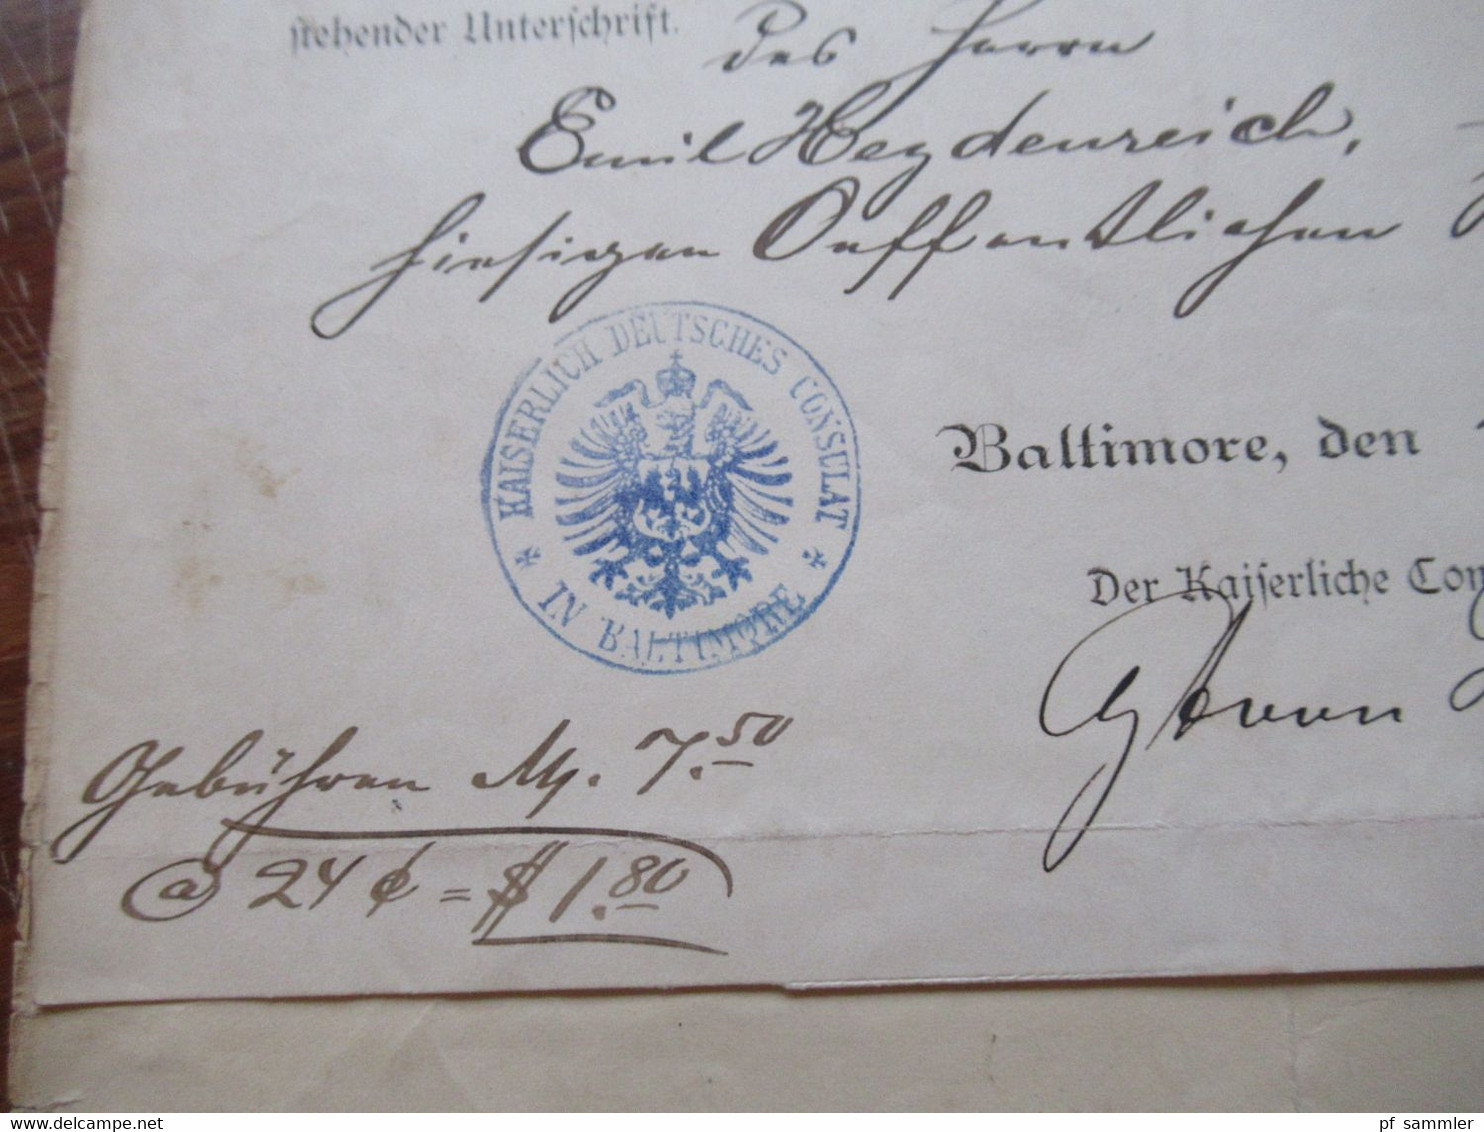 stehender Unterschrift.
des Herrn
Emil Heydenreich,
hiesigen Oeffentlichen
KAISERLICH DEUTSCHES CONSULAT
IN BALTIMORE
Baltimore, den
Der Kaiserliche Con
Gebühren Mk. 7.50
@ 24 ¢ = $ 1.80
www.delcampe.net
pf_sammler